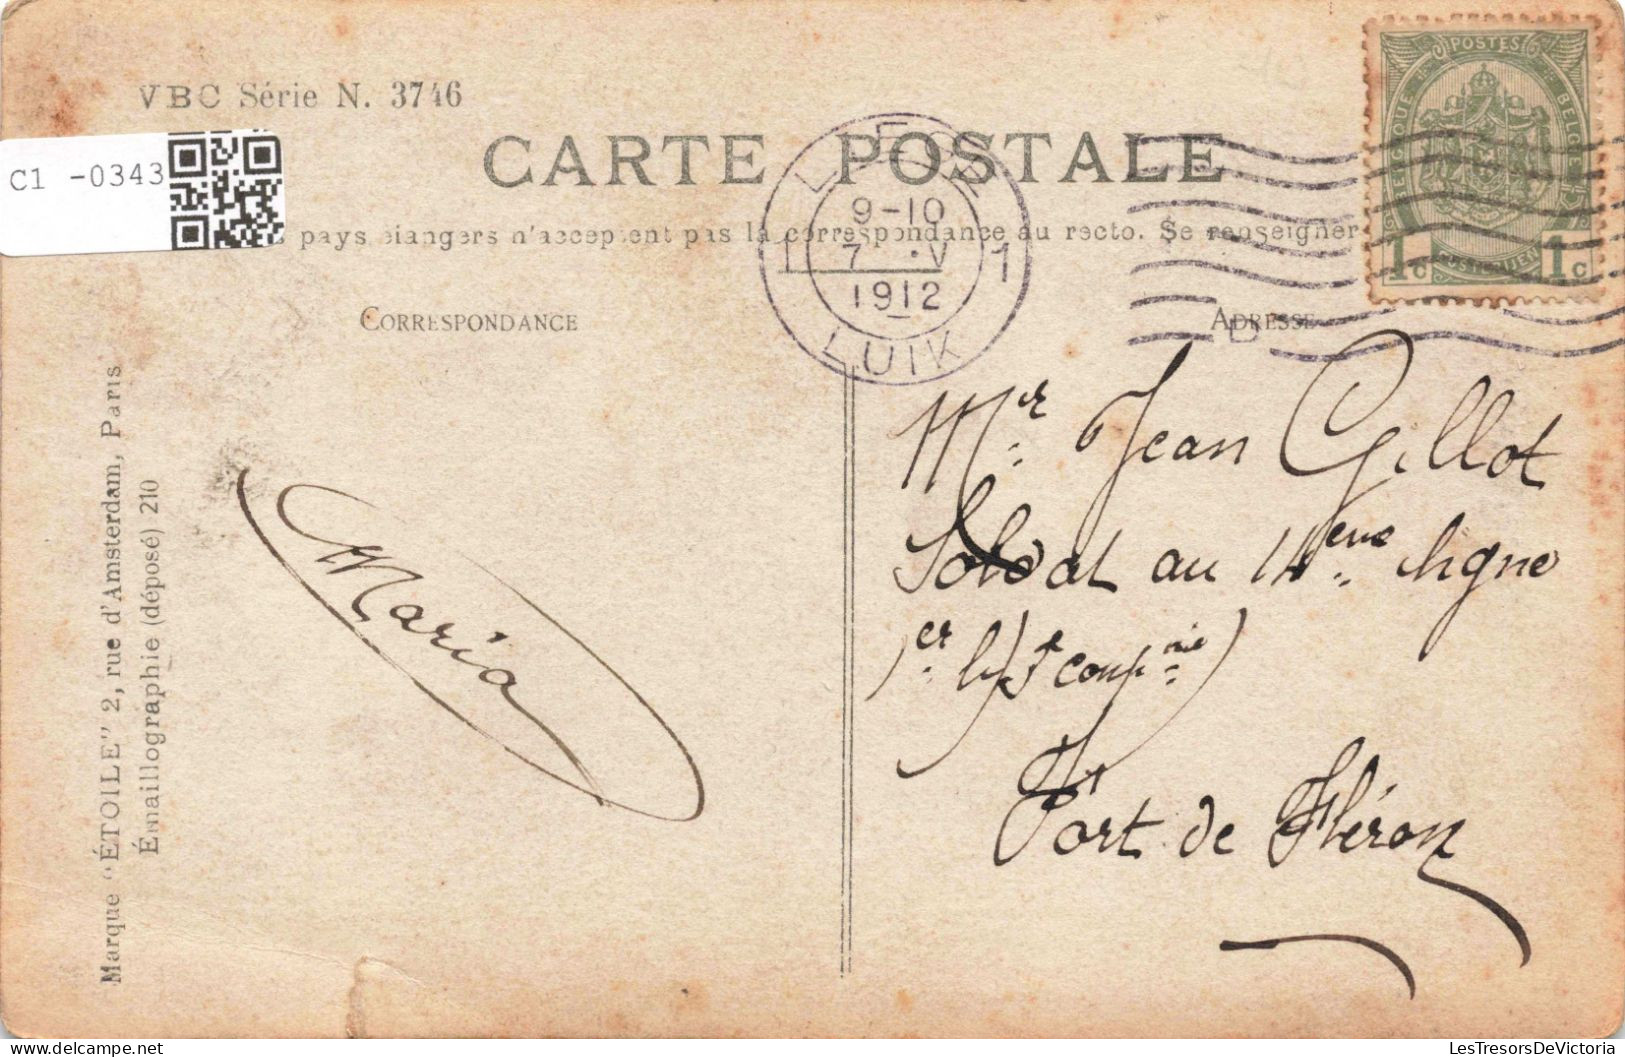 VBC Série N. 3746
CARTE POSTALE
C1 -0343
pays étrangers n'acceptent pas la correspondance au recto. Se renseigner
CORRESPONDANCE
ADRESSE
LUIK
9-10
1 7 ·V 1
1912
POSTES
BELGIQUE BELGIE
1c 1c
Mr. Jean Gillot
Soldat au 14eme ligne
Fort de Fléron
Maria
Marque "ÉTOILE" 2, rue d'Amsterdam, Paris
Émaillographie (déposé) 210
LesTresorsDeVictoria